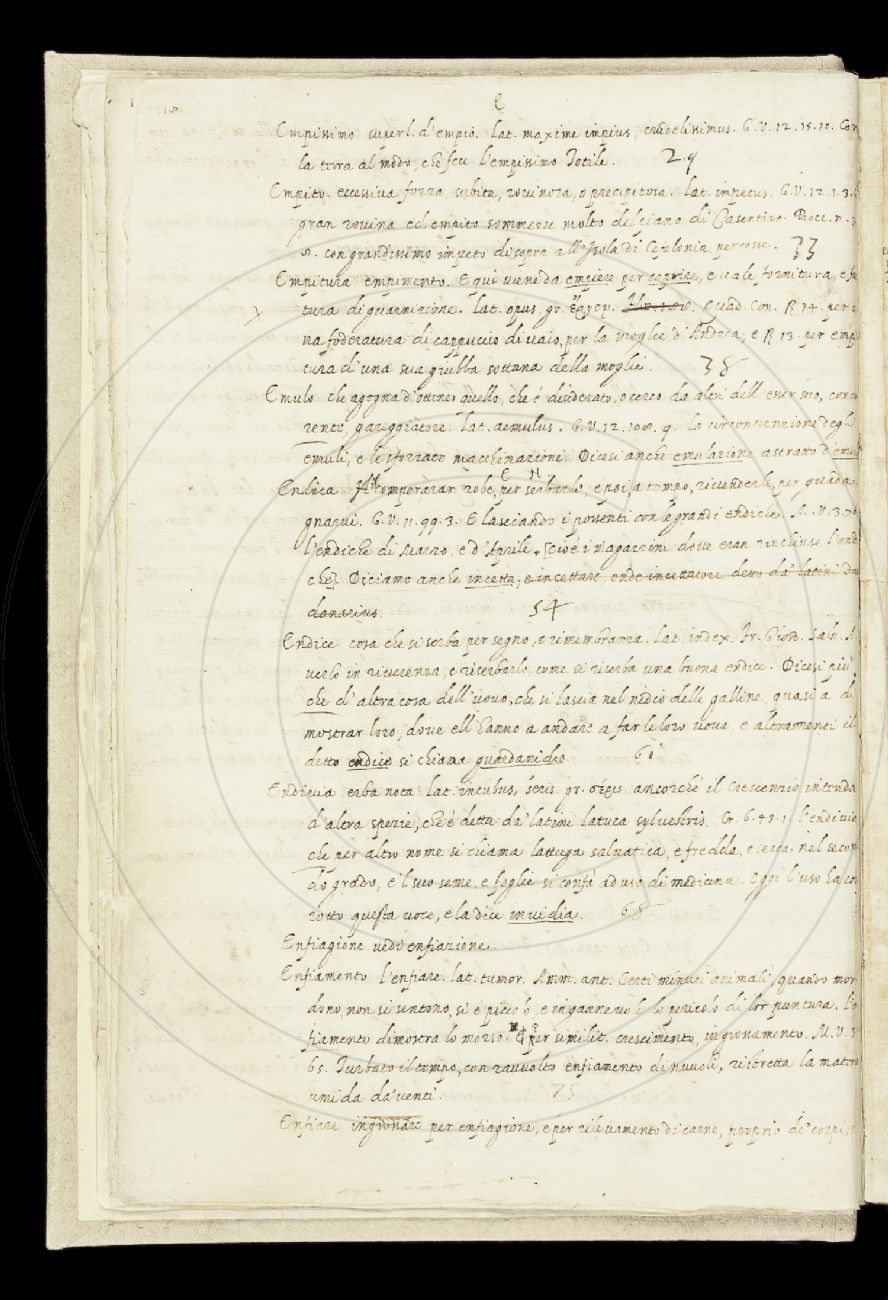 E
Empissimo superl. d'empio. lat. maxime impius, crudelissimus. G.V. 12. 15. 10. Con
la terra al modo, che feu l'empissimo Totile. 29
Empito. eccessiva forza subita, rovinosa, o precipitosa. lat. impetus. G.V. 12. 1. 3.
gran rovina ed empito sommerse molto del piano di Casentino. Bocc. n.
8. con grandissimo impeto di sopra all'Isola di Cefalonia percosse. 33
Empitura empimento. E qui viene da empiere per coprire, e vale fornitura, e
tura di guarnizione. lat. opus, gr. ἔργον. Quad. Con. R 14. per
na foderatura di cappuccio di vaio, per la moglie d'Andrea, e R 13. per empi
tura d'una sua giubba sottana della moglie. 38
Emulo che agogna d'ottener quello, che è desiderato, o cerco da altri dell'esser suo, conco
rente, gareggiatore. lat. aemulus. G.V. 12. 108. 9. La circonvenzione degli
emuli, e le sforzate macchinazioni. Dicesi anche emulazione astratto d'emul
Endica comperarar robe, per serbarle, e poi, a tempo, rivenderle, per guada
gnarvi. G.V. 11. 99. 3. E lasciando i possenti con le grandi endiche M.V. 3. 76
l'endiche di Marzo, e d'Aprile [cioè i magazzini dove eran rinchiuse l'endi
che]. Diciamo anche incetta, e incettare, onde incettatore detto da' latini Da
danarius. 54
Endice cosa che si serba per segno, e rimembranza. lat. index. Fr. Giord. Salv. A
verlo in riverenza, e riserbarlo, come si riserba una buona endice. Dicesi più
che d'altra cosa dell'uovo, che si lascia nel nidio delle galline, quasi a di
mostrar loro, dove ell'hanno a andare a far le loro uova, e altramenti il
detto endice si chiama guardanidio. 61
Endivia erba nota. lat. intubus, seris. gr. σέρις ancorchè il Crescenzio intenda
d'altra spezie, che è detta da' latini latuca sylvestris. Cr. 6. 43. 1. l'endivia
che per altro nome si chiama lattuga salvatica, e fredda, e secca nel secon
do grado, e 'l suo seme, e foglie si confà ad uso di medicina. Oggi l'uso ha cor
rotto questa voce, e la dice invidia. 68
Enfiagione vedi enfiazione.
Enfiamento l'enfiare. lat. tumor. Amm. ant. Certi minuti animali, quando mor
dono, non si sentono, sì è piccolo, e ingannevole lo pericolo di lor puntura. l'en
fiamento dimostra lo morso. per similit. crescimento, ingrossamento. M.V. 3
65. Turbato il tempo, con ravvolto enfiamento di nuvoli, ristretta la materi
umida da' venti. 75
Enfiare ingrossare per enfiagione, e per rilevamento di carne, proprio de' corpi